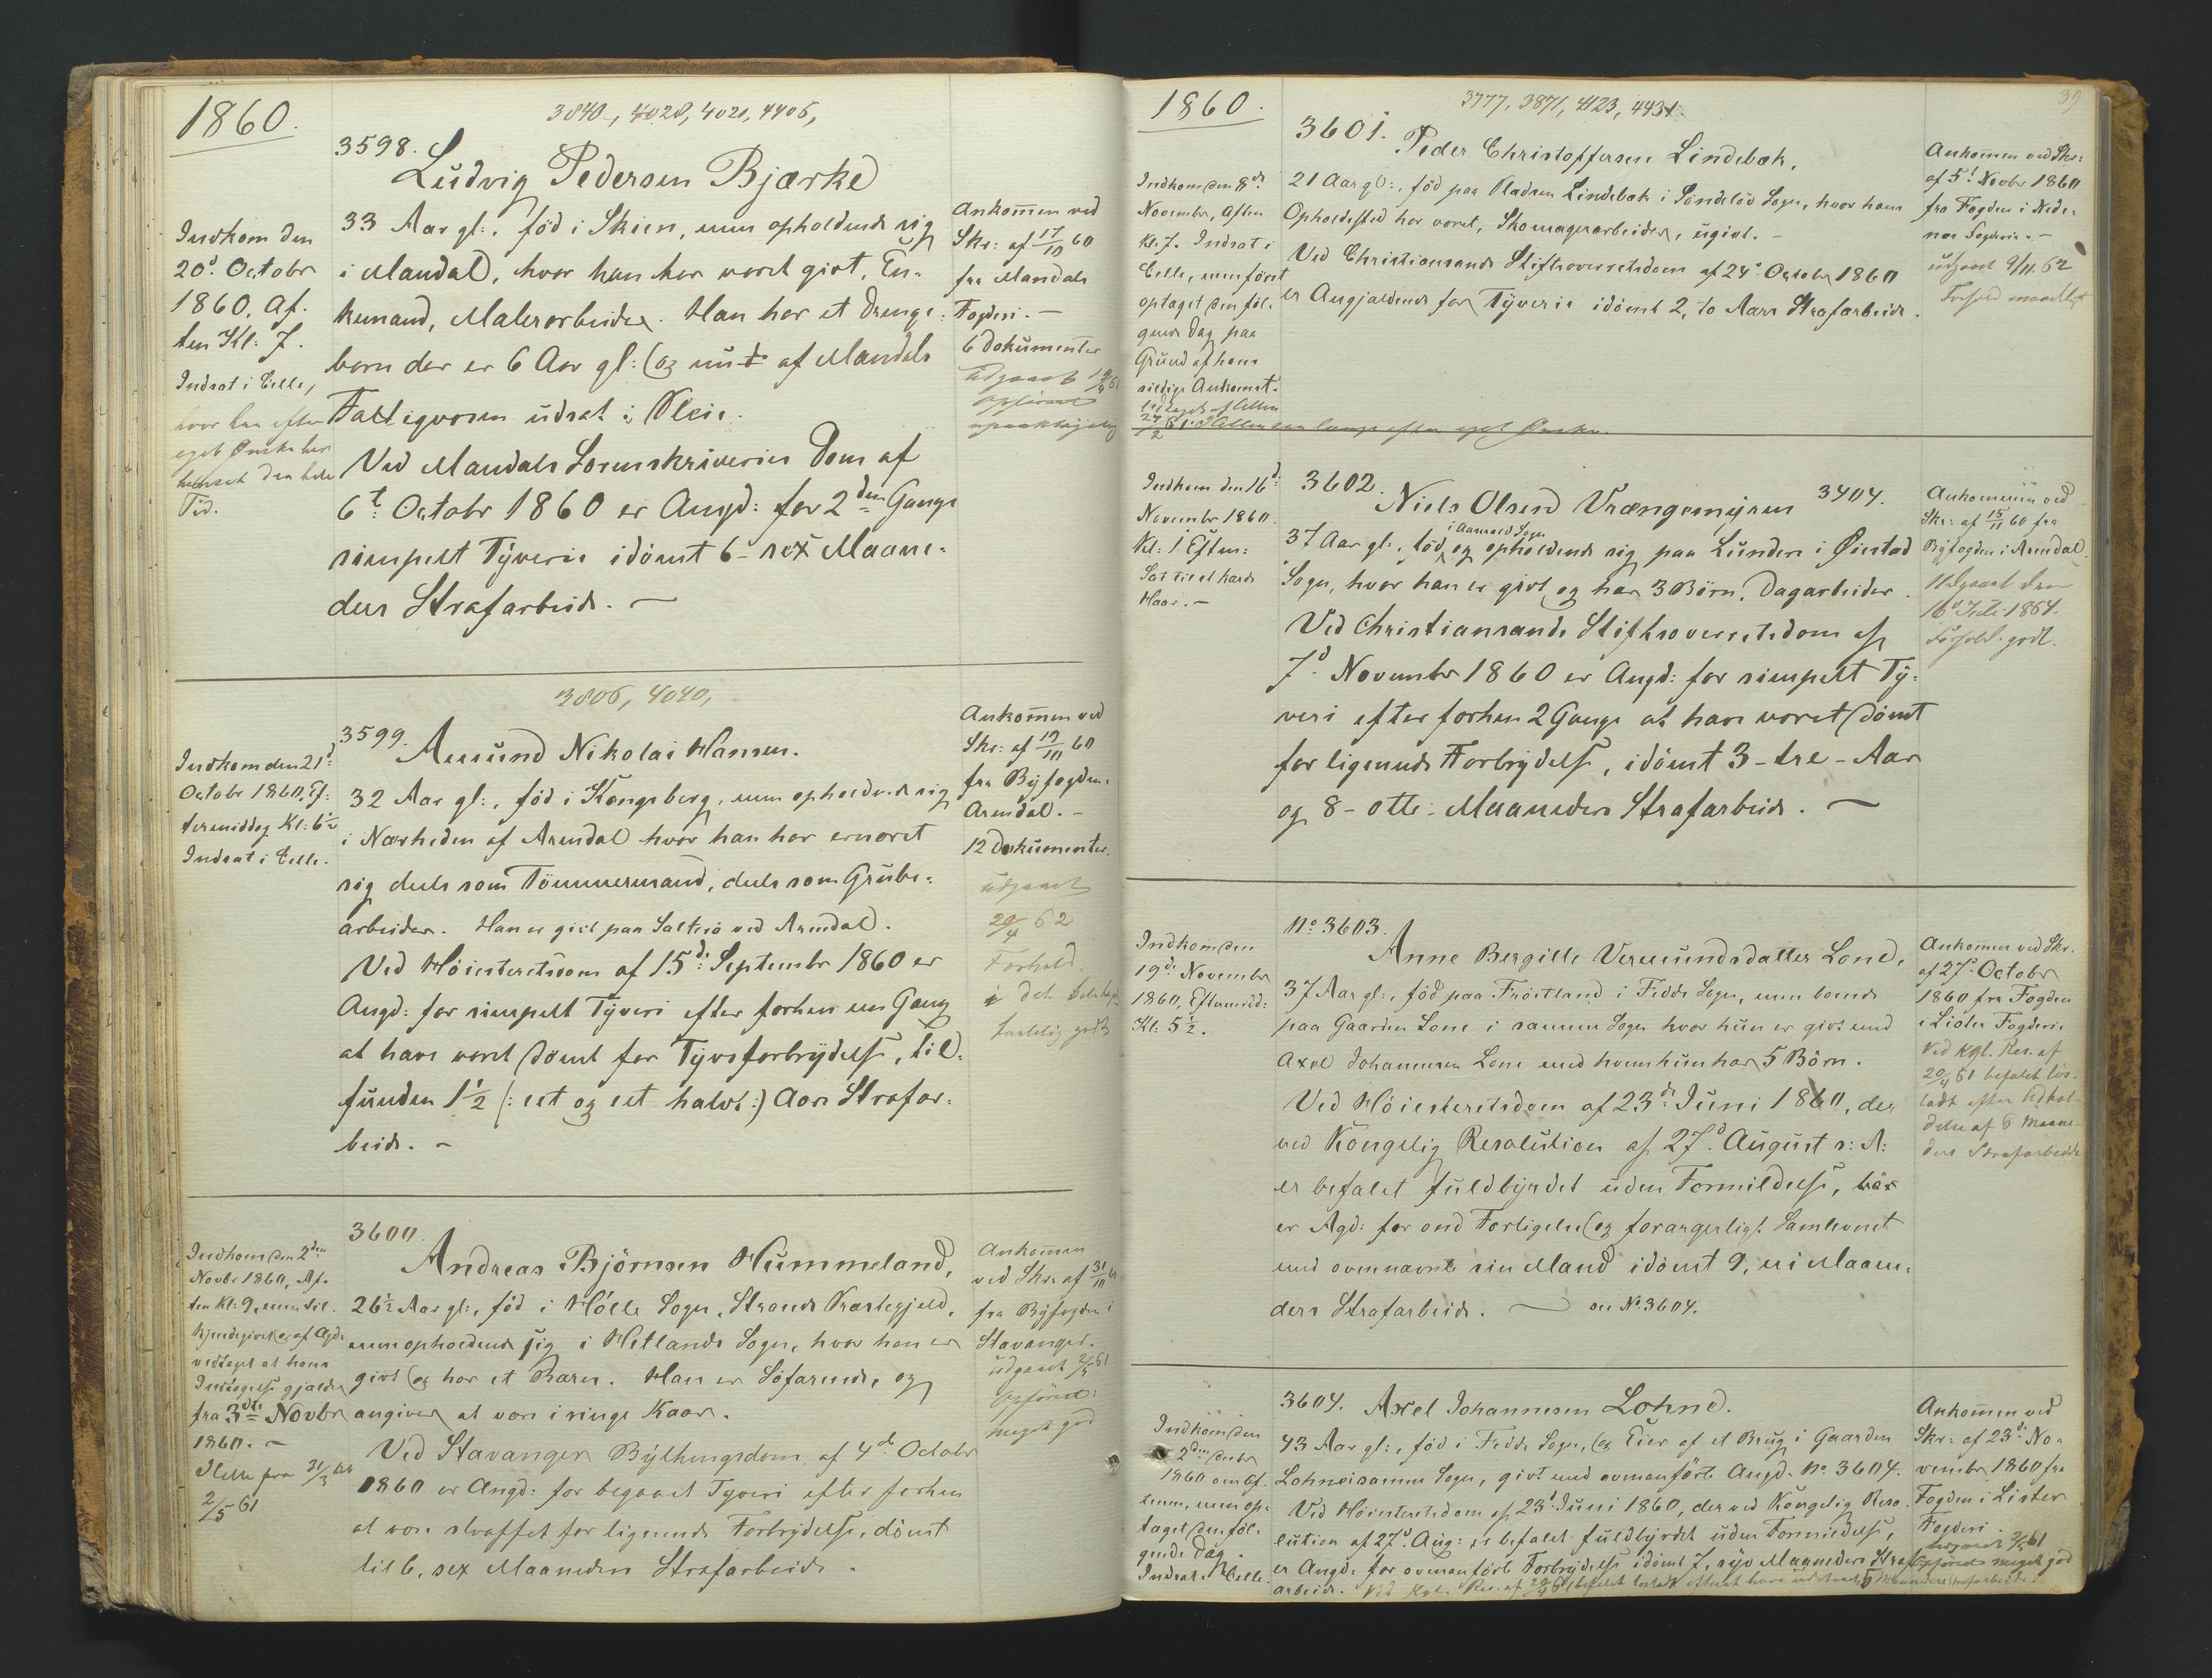 1860.
3840, 4028, 4020, 4406,
3598.
Ludvig Pedersen Bjærke
Indkom den
20d. Octobr
1860, Af-
ten Kl: 7.
Indsat i Celle,
hvor han efter
eget Ønske har
hensat den hele
Tid.
33 Aar gl:, föd i Skien, men opholdende sig
i Mandal, hvor han har været givt, En-
kemand, Malerarbeider. Han har et Drenge-
barn der er 6 Aar gl: og nu af Mandals
Fattigvæsen udsat i Pleie.
Ved Mandals Sorenskriveries Dom af
6t: Octobr 1860 er Angd: for 2den Gangs
simpelt Tyverie idömt 6 - sex Maane-
ders Strafarbeide. —
Ankommen ved
Skr: af 17/10 60
fra Mandals
Fogderi. —
6 Dokumenter
udgaaet
Opförsel
upaaklagelig
3806, 4040,
3599.
Amund Nikolai Hansen.
Indkom den 21d:
Octobr 1860, Ef-
termiddag Kl: 6½
Indsat i Celle.
32 Aar gl:, föd i Kongsberg, men opholdende sig
i Nærheden af Arendal hvor han har ernæret
sig deels som Tömmermand, deels som Grube-
arbeider. Han er givt paa Salterö ved Arendal.
Ved Höiesteretsdom af 15d: Septembr 1860 er
Angd: for simpelt Tyveri efter forhen en Gang
at have været dömt for Tyvsforbrydelse, til-
funden 1½ (: eet og eet halvt :) Aars Strafar-
beide. —
Ankommen ved
Skr: af 19/10 60
fra Byfogden i
Arendal. —
12 Dokumenter.
udgaaet
20/4 62
Forhold
i det
godt
3600.
Andreas Björnsen Hummeland,
Indkom den 2den
Novbr 1860, Af-
ten Kl: 9, men til-
kjendegivet og af Agd:
vedtaget at hans
Indtagelse gjælder
fra 3die Novbr
1860. —
Celle fra 31/3 til
2/5 61
26½ Aar gl:, föd i Hölle Sogn, Strands Præstegjeld,
men opholdende sig i Hetlands Sogn, hvor han er
givt og har et Barn. Han er Söfarende, og
angiver at være i ringe Kaar.
Ved Stavanger Bythingsdom af 4de Octobr
1860 er Angd: for begaaet Tyveri efter forhen
at være straffet for lignende Forbrydelse, dömt
til 6, sex Maaneders Strafarbeide.
Ankommen
ved Skr: af 31/10 60
fra Byfogden i
Stavanger.
udgaaet 2/5 61
Opförsel:
meget god
1860.
3777, 3871, 4123, 4431
39
3601.
Peder Christoffersen Lindebæk,
Indkom den 8de
Novembr, Aften
Kl. 7. Indsat i
Celle, men först
optaget den föl-
gende Dag paa
Grund af hans
sildige Ankomst.
Udtaget af Cellen
24/2 61. I Cellen saa længe efter eget Ønske.
21 Aar gl:, föd paa Pladsen Lindebæk i Söndelöv Sogn, hvor hans
Opholdssted har været, Skomagerarbeider, ugivt. —
Ved Christiansands Stiftsoverretsdom af 24d. October 1860
er Angjældende for Tyverie idömt 2, to Aars Strafarbeide.
Ankommen ved Skr:
af 5t Novbr 1860
fra Fogden i Nede-
næs Fogderie. —
udgaaet 9/11. 62
Forhold maadeligt
3602.
Niels Olsen Vrængemyren 3404.
Indkom den 16d:
Novembr 1860.
Kl: 1 Efterm:
Sat til et hards
Haar. —
i Aamaaes Sogn
37 Aar gl:, föd og opholdende sig paa Lunden i Øiestad
Sogn, hvor han er givt og har 3 Börn. Dagarbeider.
Ved Christiansands Stiftsoverretsdom af
7d. Novembr 1860 er Angd: for simpelt Ty-
veri efter forhen 2 Gange at have været dömt
for lignende Forbrydelse, idömt 3 - tre - Aar
og 8 - otte - Maaneders Strafarbeide. —
Ankommen ved
Skr: af 15/11 60 fra
Byfogden i Arendal.
Udgaaet den
16d Juli 1864.
Forhold. godt.
No. 3603.
Anne Bergitte Vermundsdatter Lone,
Indkom den
19de Novembr
1860, Eftermidd:
Kl: 5½.
37 Aar gl:, föd paa Fröitland i Fedde Sogn, men boende
paa Gaarden Lone i samme Sogn hvor hun er givt med
Axel Johannesen Lone med hvem hun har 5 Börn.
Ved Höiesteretsdom af 23de Juni 1860, der
ved Kongelig Resolution af 27d. August s: A:
er befalet fuldbyrdet uden Formildelse,
er Agd: for ond Forligelse og forargerligt Samlevnet
med ovennævnte sin Mand idömt 9, ni Maane-
ders Strafarbeide. — see No. 3604.
Ankommen ved Skr.
af 27d. Octobr
1860 fra Fogden
i Lister Fogderie
Ved Kgl. Res. af
20/4 61 befalet lös-
ladt efter Udhol-
delse af 6 Maane-
ders Strafarbeide
3604. Axel Johannesen Lohne.
Indkom den
2den Decbr
1860 om Af-
tenen, men op-
taget den föl-
gende Dag.
Indsat i Celle.
43 Aar gl:, föd i Fedde Sogn, og Eier af et Brug i Gaarden
Lohne i samme Sogn, givt med ovenanförte Angd. No. 3604.
Ved Höiesteretsdom af 23d Juni 1860, der ved Kongelig Reso-
lution af 27d. Aug: er befalet fuldbyrdet uden Formildelse,
er Angd: for ovenanförte Forbrydelse idömt 7, syv Maaneders Straf-
arbeide. Ved Kgl. Res. af 20/4 61 befalet lösladt efter at have udstaaet 5 Maaneders Strafarbeide.
Ankommen ved
Skr: af 23d: No-
vembr 1860 fra
Fogden i Lister
Fogderi.
udgaaet 2/5 61
Opförsel meget god